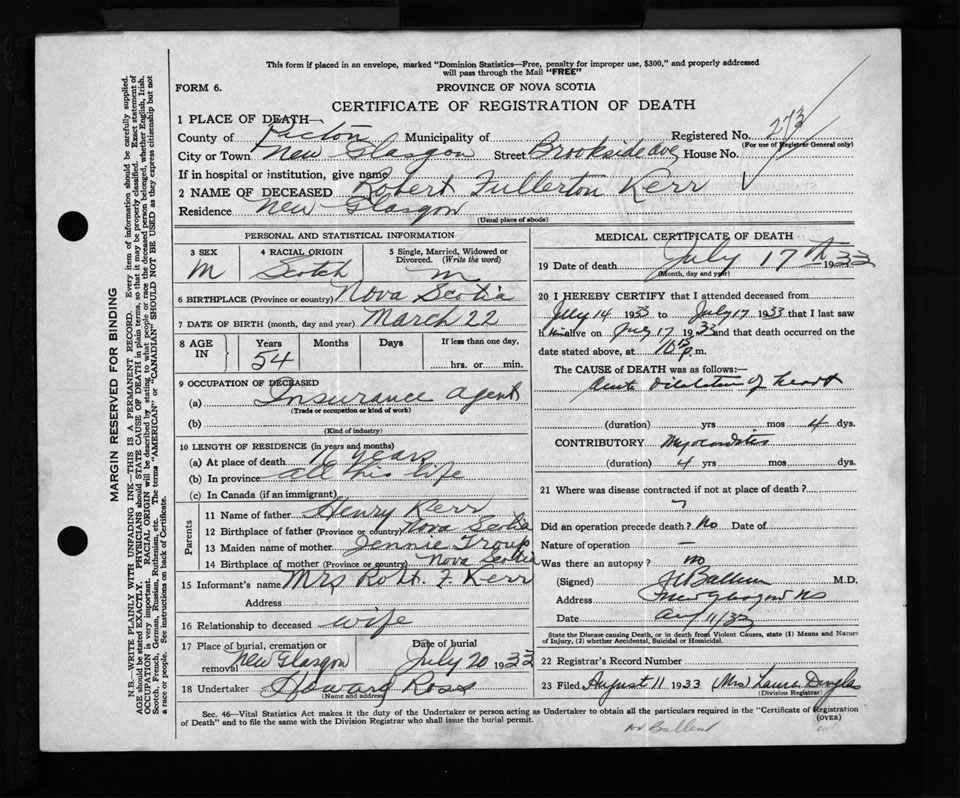 This form if placed in an envelope, marked "Dominion Statistics—Free, penalty for improper use, $300," and properly addressed
will pass through the Mail "FREE"
FORM 6.
PROVINCE OF NOVA SCOTIA
CERTIFICATE OF REGISTRATION OF DEATH
1 PLACE OF DEATH—
County of Pictou Municipality of Registered No. 273
(For use of Registrar General only)
City or Town New Glasgow Street Brookside Ave House No.
If in hospital or institution, give name
2 NAME OF DECEASED Robert Fullerton Kerr
Residence New Glasgow
(Usual place of abode)
PERSONAL AND STATISTICAL INFORMATION
3 SEX 4 RACIAL ORIGIN 5 Single, Married, Widowed or
Divorced. (Write the word)
M Scotch m
6 BIRTHPLACE (Province or country) Nova Scotia
7 DATE OF BIRTH (month, day and year) March 22
8 AGE IN Years Months Days If less than one day,
54 hrs. or min.
9 OCCUPATION OF DECEASED
(a) Insurance agent
(Trade or occupation or kind of work)
(b)
(Kind of industry)
10 LENGTH OF RESIDENCE (in years and months)
(a) At place of death years
(b) In province all his life
(c) In Canada (if an immigrant)
Parents
11 Name of father Henry Kerr
12 Birthplace of father (Province or country) Nova Scotia
13 Maiden name of mother Jennie Troup
14 Birthplace of mother (Province or country) Nova Scotia
15 Informant's name Mrs Robt. F Kerr
Address
16 Relationship to deceased wife
17 Place of burial, cremation or Date of burial
removal New Glasgow July 20 1933
18 Undertaker Howard Ross
(Name and address)
MEDICAL CERTIFICATE OF DEATH
19 Date of death July 17th 1933
(Month, day and year)
20 I HEREBY CERTIFY that I attended deceased from
July 14 1933 to July 17 1933 that I last saw
him alive on July 17 1933 and that death occurred on the
date stated above, at 10 15 p.m.
The CAUSE OF DEATH was as follows:—
Acute Dilatation of heart
(duration) yrs mos 4 dys.
CONTRIBUTORY Myocarditis
(duration) 4 yrs mos dys.
21 Where was disease contracted if not at place of death?
Did an operation precede death? No Date of
Nature of operation —
Was there an autopsy? no
(Signed) M.D.
Address New Glasgow NS
Date Aug 11/33
State the Disease causing Death, or in death from Violent Causes, state (1) Means and Nature
of Injury, (2) whether Accidental, Suicidal or Homicidal.
22 Registrar's Record Number
23 Filed August 11 1933 (Mrs) Laura Douglas
(Division Registrar)
Sec. 46—Vital Statistics Act makes it the duty of the Undertaker or person acting as Undertaker to obtain all the particulars required in the "Certificate of Registration
of Death" and to file the same with the Division Registrar who shall issue the burial permit.
(OVER)
MARGIN RESERVED FOR BINDING
N.B.—WRITE PLAINLY WITH UNFADING INK—THIS IS A PERMANENT RECORD. Every item of information should be carefully supplied.
AGE should be stated EXACTLY. PHYSICIANS should STATE CAUSE OF DEATH in plain terms, so that it may be properly classified. Exact statement of
OCCUPATION is very important. RACIAL ORIGIN will be described by stating to what people or race the deceased person belonged, whether English, Irish,
Scotch, French, German, Russian, Ruthenian, etc. The terms "AMERICAN" or "CANADIAN" SHOULD NOT BE USED as they express citizenship but not
a race or people. See instructions on back of Certificate.